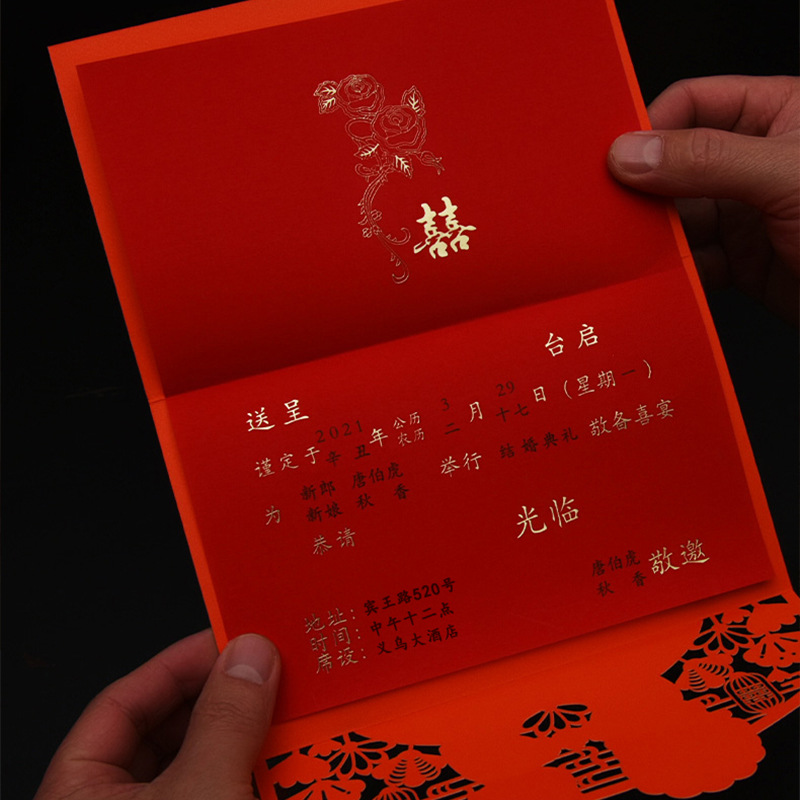 囍
台启
送呈
谨定于 2021 年 公历 3 月 29 日（星期一）
辛丑 农历 二 十七
为 新郎 唐伯虎 举行 结婚典礼 敬备喜宴
新娘 秋香
恭请
光临
唐伯虎 敬邀
秋香
地址：宾王路520号
时间：中午十二点
席设：义乌大酒店